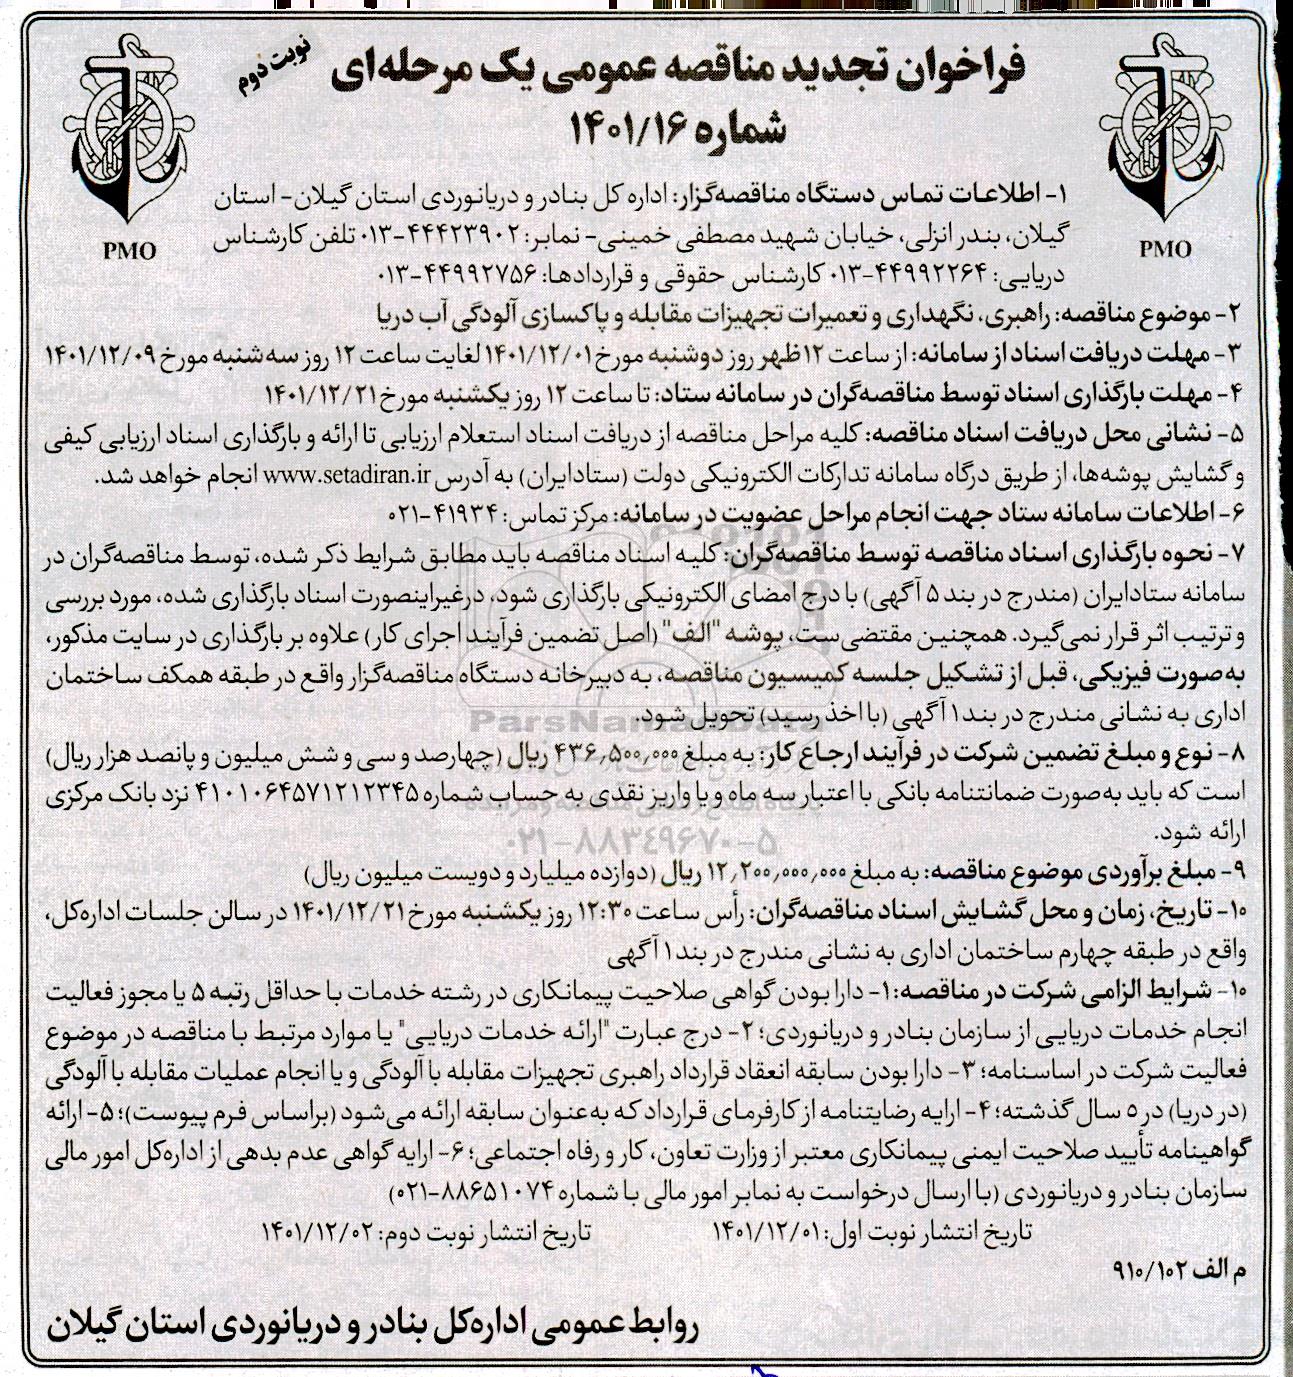 نوبت دوم
فراخوان تجدید مناقصه عمومی یک مرحله‌ای
شماره ۱۴۰۱/۱۶
PMO
PMO
۱- اطلاعات تماس دستگاه مناقصه‌گزار: اداره کل بنادر و دریانوردی استان گیلان- استان
گیلان، بندر انزلی، خیابان شهید مصطفی خمینی- نمابر: ۴۴۴۲۳۹۰۲-۰۱۳ تلفن کارشناس
دریایی: ۴۴۹۹۲۲۶۴-۰۱۳ کارشناس حقوقی و قراردادها: ۴۴۹۹۲۷۵۶-۰۱۳
۲- موضوع مناقصه: راهبری، نگهداری و تعمیرات تجهیزات مقابله و پاکسازی آلودگی آب دریا
۳- مهلت دریافت اسناد از سامانه: از ساعت ۱۲ ظهر روز دوشنبه مورخ ۱۴۰۱/۱۲/۰۱ لغایت ساعت ۱۲ روز سه شنبه مورخ ۱۴۰۱/۱۲/۰۹
۴- مهلت بارگذاری اسناد توسط مناقصه‌گران در سامانه ستاد: تا ساعت ۱۲ روز یکشنبه مورخ ۱۴۰۱/۱۲/۲۱
۵- نشانی محل دریافت اسناد مناقصه: کلیه مراحل مناقصه از دریافت اسناد استعلام ارزیابی تا ارائه و بارگذاری اسناد ارزیابی کیفی
و گشایش پوشه‌ها، از طریق درگاه سامانه تدارکات الکترونیکی دولت (ستادایران) به آدرس www.setadiran.ir انجام خواهد شد.
۶- اطلاعات سامانه ستاد جهت انجام مراحل عضویت در سامانه: مرکز تماس: ۴۱۹۳۴-۰۲۱
۷- نحوه بارگذاری اسناد مناقصه توسط مناقصه‌گران: کلیه اسناد مناقصه باید مطابق شرایط ذکر شده، توسط مناقصه‌گران در
سامانه ستادایران (مندرج در بند ۵ آگهی) با درج امضای الکترونیکی بارگذاری شود، درغیراینصورت اسناد بارگذاری شده، مورد بررسی
و ترتیب اثر قرار نمی‌گیرد. همچنین مقتضی‌ست، پوشه "الف" (اصل تضمین فرآیند اجرای کار) علاوه بر بارگذاری در سایت مذکور،
به‌صورت فیزیکی، قبل از تشکیل جلسه کمیسیون مناقصه، به دبیرخانه دستگاه مناقصه‌گزار واقع در طبقه همکف ساختمان
اداری به نشانی مندرج در بند ۱ آگهی (با اخذ رسید) تحویل شود.
ParsNamadData
۸- نوع و مبلغ تضمین شرکت در فرآیند ارجاع کار: به مبلغ ۴۳۶,۵۰۰,۰۰۰ ریال (چهارصد و سی و شش میلیون و پانصد هزار ریال)
است که باید به‌صورت ضمانتنامه بانکی با اعتبار سه ماه و یا واریز نقدی به حساب شماره ۴۱۰۱۰۶۴۵۷۱۲۱۲۳۴۵ نزد بانک مرکزی
ارائه شود.
۰۲۱-۸۸۳۴۹۶۷۰-۵
۹- مبلغ برآوردی موضوع مناقصه: به مبلغ ۱۲,۲۰۰,۰۰۰,۰۰۰ ریال (دوازده میلیارد و دویست میلیون ریال)
۱۰- تاریخ، زمان و محل گشایش اسناد مناقصه‌گران: رأس ساعت ۱۲:۳۰ روز یکشنبه مورخ ۱۴۰۱/۱۲/۲۱ در سالن جلسات اداره‌کل،
واقع در طبقه چهارم ساختمان اداری به نشانی مندرج در بند ۱ آگهی
۱۰- شرایط الزامی شرکت در مناقصه: ۱- دارا بودن گواهی صلاحیت پیمانکاری در رشته خدمات با حداقل رتبه ۵ یا مجوز فعالیت
انجام خدمات دریایی از سازمان بنادر و دریانوردی؛ ۲- درج عبارت "ارائه خدمات دریایی" یا موارد مرتبط با مناقصه در موضوع
فعالیت شرکت در اساسنامه؛ ۳- دارا بودن سابقه انعقاد قرارداد راهبری تجهیزات مقابله با آلودگی و یا انجام عملیات مقابله با آلودگی
(در دریا) در ۵ سال گذشته؛ ۴- ارایه رضایتنامه از کارفرمای قرارداد که به‌عنوان سابقه ارائه می‌شود (براساس فرم پیوست)؛ ۵- ارائه
گواهینامه تأیید صلاحیت ایمنی پیمانکاری معتبر از وزارت تعاون، کار و رفاه اجتماعی؛ ۶- ارایه گواهی عدم بدهی از اداره‌کل امور مالی
سازمان بنادر و دریانوردی (با ارسال درخواست به نمابر امور مالی با شماره ۸۸۶۵۱۰۷۴-۰۲۱)
تاریخ انتشار نوبت اول: ۱۴۰۱/۱۲/۰۱ تاریخ انتشار نوبت دوم: ۱۴۰۱/۱۲/۰۲
م الف ۹۱۰/۱۰۲
روابط عمومی اداره‌کل بنادر و دریانوردی استان گیلان